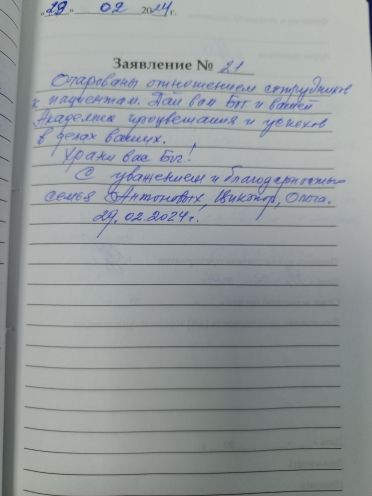 „29" 02 2024г.
Заявление № 21
Очарованы отношением сотрудников
к пациентам. Дай вам Бог и вашей
Академии процветания и успехов
в делах ваших.
Храни вас Бог!
С уважением и благодарностью
семья Антоновых, Ольга.
29.02.2024г.